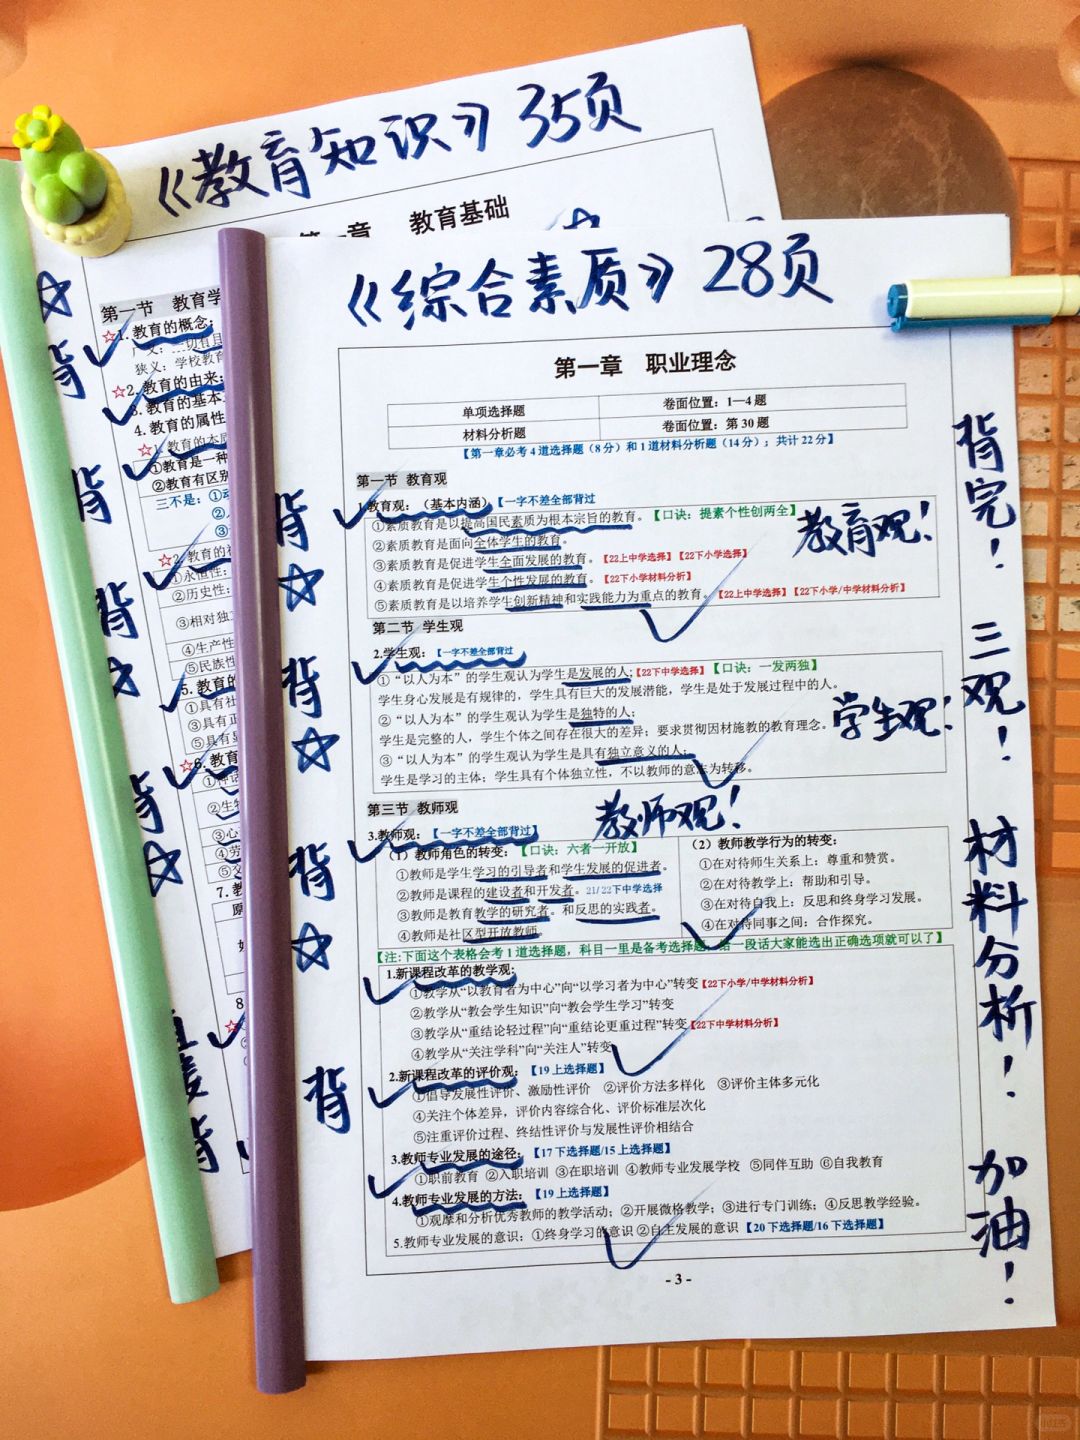 《教育知识》35页
教育基础
第一节 教育学
☆1.教育的概念：
狭义：学校教育
☆2.教育的由来：
3.教育的基本
4.教育的属性
☆1.教育的本质
①教育是一种
②教育有区别
三不是：①动
☆2.教育的社
①永恒性：
②历史性：
③相对独立
④生产性
⑤民族性
5.教育的
①具有社
③具有正
⑤具有显
☆6.教育
①神话
②生物
③心
④劳
⑤交
7.教
8
背
背
背
背
背
背
《综合素质》28页
第一章 职业理念
单项选择题 卷面位置：1—4题
材料分析题 卷面位置：第30题
【第一章必考4道选择题（8分）和1道材料分析题（14分）；共计22分】
第一节 教育观
1.教育观：（基本内涵）【一字不差全部背过
①素质教育是以提高国民素质为根本宗旨的教育。【口诀：提素个性创两全】
②素质教育是面向全体学生的教育。
③素质教育是促进学生全面发展的教育。【22上中学选择】【22下小学选择】
④素质教育是促进学生个性发展的教育。【22下小学材料分析】
⑤素质教育是以培养学生创新精神和实践能力为重点的教育。【22上中学选择】【22下小学/中学材料分析】
教育观！
第二节 学生观
2.学生观：【一字不差全部背过
①“以人为本”的学生观认为学生是发展的人;【22下中学选择】【口诀：一发两独】
学生身心发展是有规律的，学生具有巨大的发展潜能，学生是处于发展过程中的人。
②“以人为本”的学生观认为学生是独特的人；
学生是完整的人，学生个体之间存在很大的差异；要求贯彻因材施教的教育理念。
③“以人为本”的学生观认为学生是具有独立意义的人；
学生是学习的主体；学生具有个体独立性，不以教师的意志为转移。
学生观！
第三节 教师观
教师观！
3.教师观：【一字不差全部背过】
（1）教师角色的转变：【口诀：六者一开放】
①教师是学生学习的引导者和学生发展的促进者。
②教师是课程的建设者和开发者。21/22下中学选择
③教师是教育教学的研究者。和反思的实践者。
④教师是社区型开放教师。
（2）教师教学行为的转变：
①在对待师生关系上：尊重和赞赏。
②在对待教学上：帮助和引导。
③在对待自我上：反思和终身学习发展。
④在对待同事之间：合作探究。
【注:下面这个表格会考1道选择题，科目一里是备考选择题；给一段话大家能选出正确选项就可以了】
1.新课程改革的教学观：
①教学从“以教育者为中心”向“以学习者为中心”转变【22下小学/中学材料分析】
②教学从“教会学生知识”向“教会学生学习”转变
③教学从“重结论轻过程”向“重结论更重过程”转变【22下中学材料分析】
④教学从“关注学科”向“关注人”转变
2.新课程改革的评价观：【19上选择题】
①倡导发展性评价、激励性评价 ②评价方法多样化 ③评价主体多元化
④关注个体差异，评价内容综合化、评价标准层次化
⑤注重评价过程、终结性评价与发展性评价相结合
3.教师专业发展的途径：【17下选择题/15上选择题】
①职前教育 ②入职培训 ③在职培训 ④教师专业发展学校 ⑤同伴互助 ⑥自我教育
4.教师专业发展的方法：【19上选择题】
①观摩和分析优秀教师的教学活动；②开展微格教学；③进行专门训练；④反思教学经验。
5.教师专业发展的意识：①终身学习的意识 ②自主发展的意识【20下选择题/16下选择题】
- 3 -
背
背
背
背
背完！三观！材料分析！加油！